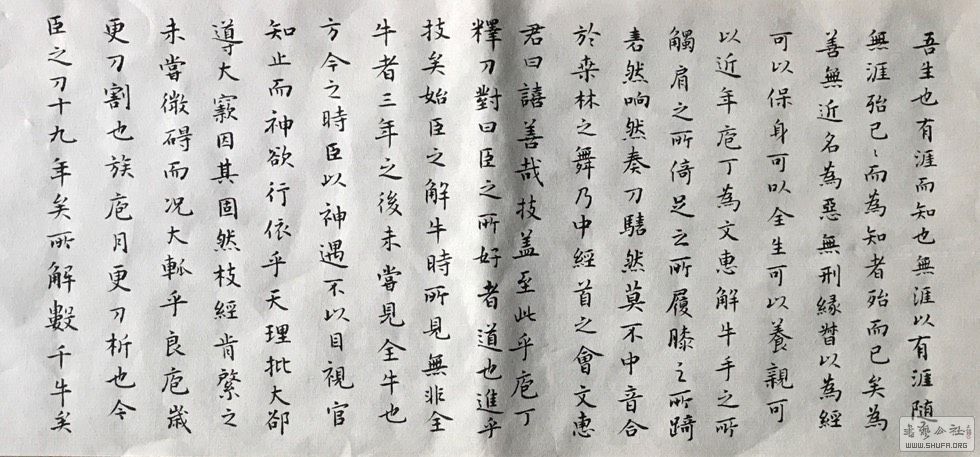 吾生也有涯而知也無涯以有涯随
無涯殆已〻而為知者殆而已矣為
善無近名為惡無刑緣督以為經
可以保身可以全生可以養親可
以近年庖丁為文惠解牛手之所
觸肩之所倚足之所履膝之所踦
砉然响然奏刀騞然莫不中音合
於桒林之舞乃中經首之會文惠
君曰譆善哉技盖至此乎庖丁
釋刀對曰臣之所好者道也進乎
技矣始臣之解牛時所見無非全
牛者三年之後未嘗見全牛也
方今之時臣以神遇不以目視官
知止而神欲行依乎天理批大郤
導大窾因其固然枝經肯綮之
未嘗微碍而况大軱乎良庖歲
更刀割也族庖月更刀析也今
臣之刀十九年矣所解數千牛矣
書藝公社
WWW.SHUFA.ORG